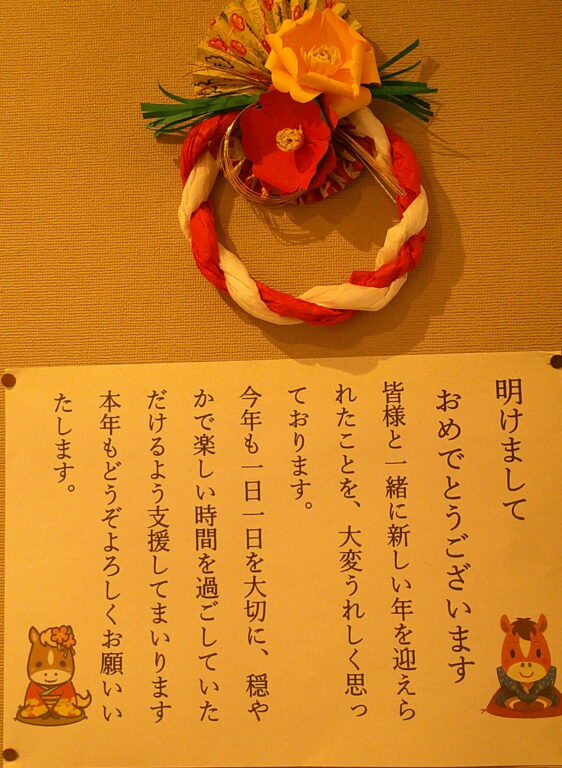 明けまして
おめでとうございます
皆様と一緒に新しい年を迎えら
れたことを、大変うれしく思っ
ております。
今年も一日一日を大切に、穏や
かで楽しい時間を過ごしていた
だけるよう支援してまいります
本年もどうぞよろしくお願いい
たします。